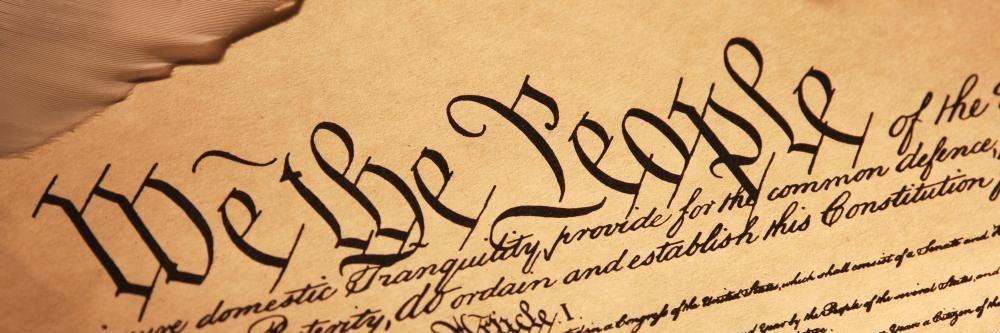 We the People of the
ure domestic Tranquility, provide for the common defence,
Posterity, do ordain and establish this Constitution
Article. I
in a Congress of the United States, which shall consist of a Senate and
Year by the People of the several States, and
Years a Citizen of the